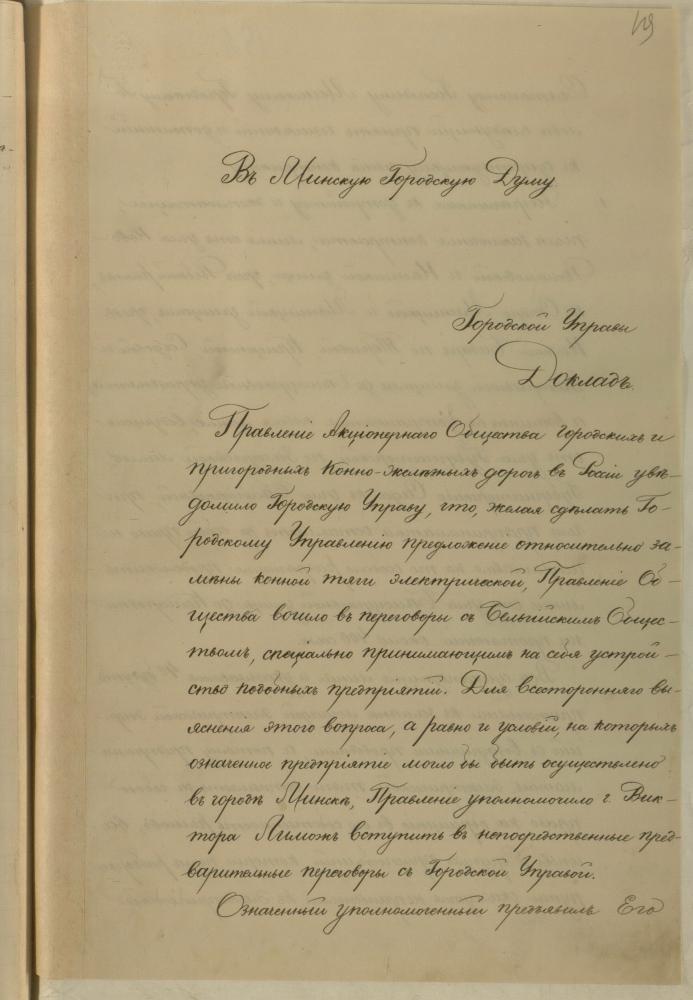 49
Въ Минскую Городскую Думу
Городской Управы
Докладъ.
Правленіе Акціонернаго Общества городскихъ и
пригородныхъ конно-желѣзныхъ дорогъ въ Россіи увѣ-
домило Городскую Управу, что, желая сдѣлать Го-
родскому Управленію предложеніе относительно за-
мѣны конной тяги электрической, Правленіе Об-
щества вошло въ переговоры съ Бельгійскимъ Общес-
твомъ, спеціально принимающимъ на себя устрой-
ство подобныхъ предпріятій. Для всесторонняго вы-
ясненія этого вопроса, а равно и условій, на которыхъ
означенное предпріятіе могло бы быть осуществлено
въ городѣ Минскѣ, Правленіе уполномочило г. Вик-
тора Лиможъ вступить въ непосредственные пред-
варительные переговоры съ Городской Управой.
Означенный уполномоченный предъявилъ Его